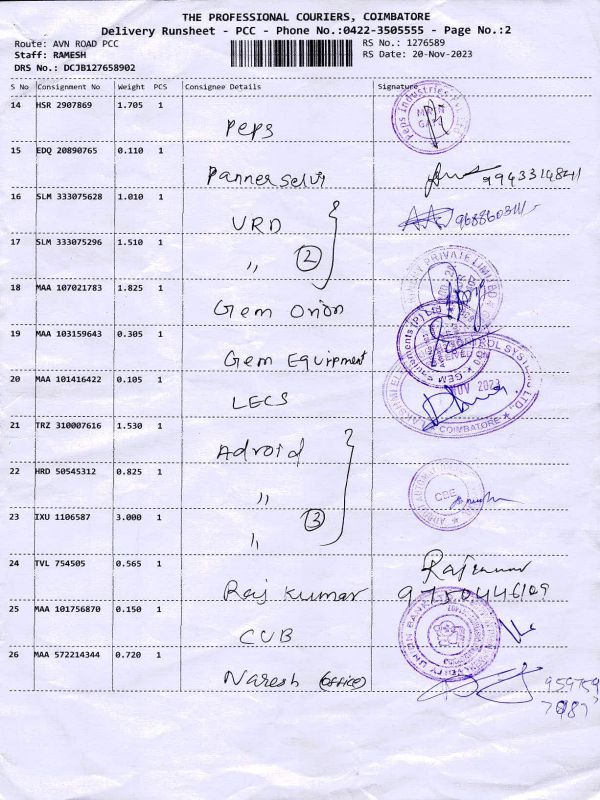 THE PROFESSIONAL COURIERS, COIMBATORE
Delivery Runsheet - PCC - Phone No.:0422-3505555 - Page No.:2
Route: AVN ROAD PCC
RS No.: 1276589
Staff: RAMESH
RS Date: 20-Nov-2023
DRS No.: DCJB127658902
S No Consignment No Weight PCS Consignee Details Signature
14 HSR 2907869 1.705 1
Peps
15 EDQ 20890765 0.110 1
Panner selvi
16 SLM 333075628 1.010 1
VRD
17 SLM 333075296 1.510 1
" 2
18 MAA 107021783 1.825 1
Gem Orion
19 MAA 103159643 0.305 1
Gem Equipment
20 MAA 101416422 0.105 1
LECS
21 TRZ 310007616 1.530 1
Adroid
22 HRD 50545312 0.825 1
"
23 IXU 1106587 3.000 1
" 3
24 TVL 754505 0.565 1
Raj Kumar
Rajkumar
9750446109
25 MAA 101756870 0.150 1
CUB
26 MAA 572214344 0.720 1
Naresh (OFFICE)